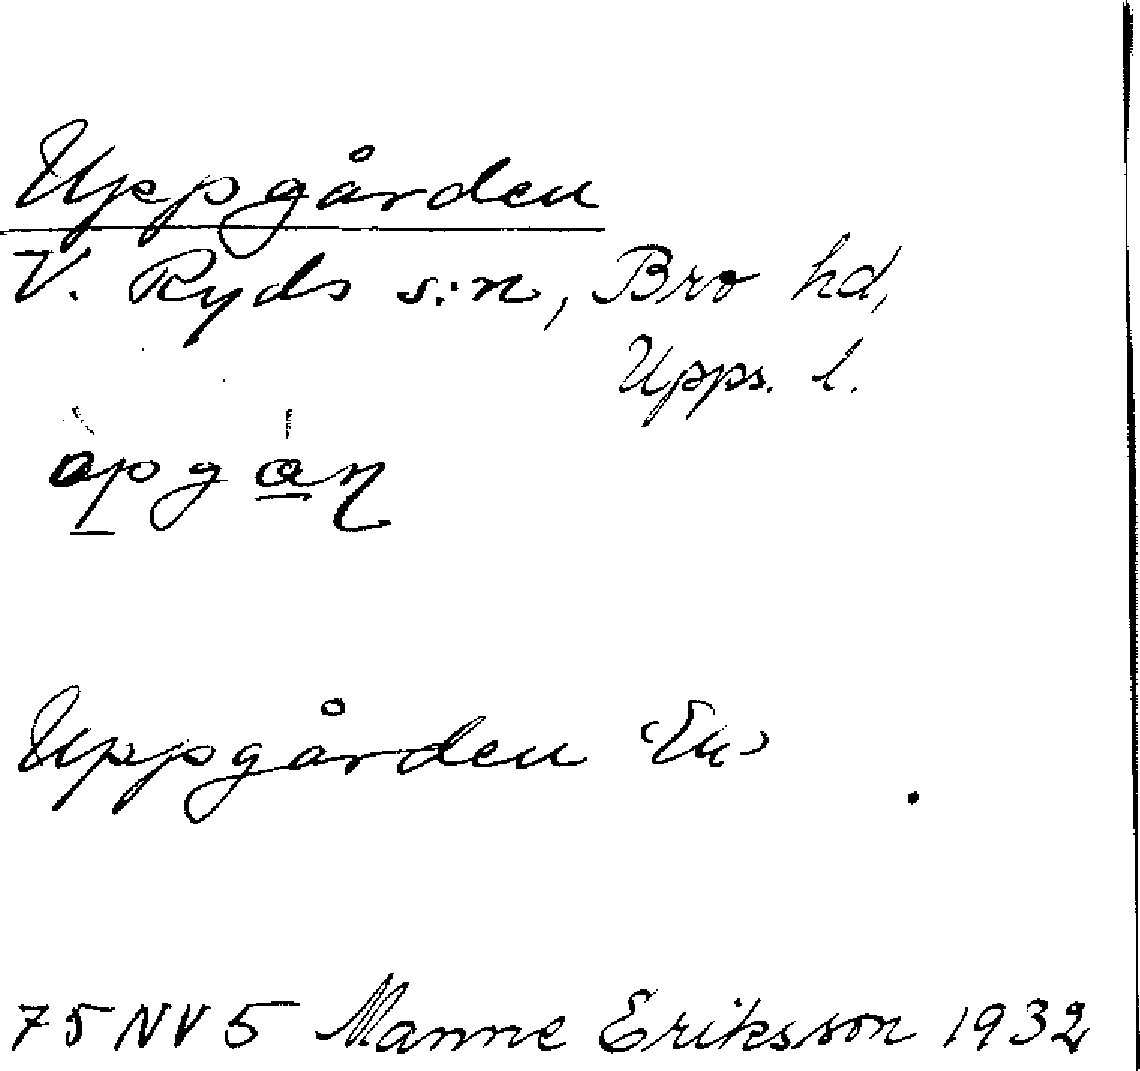 Uppgården
V. Ryds s:n, Bro hd,
Upps. l.
Uppgården
75 NV 5 Manne Eriksson 1932